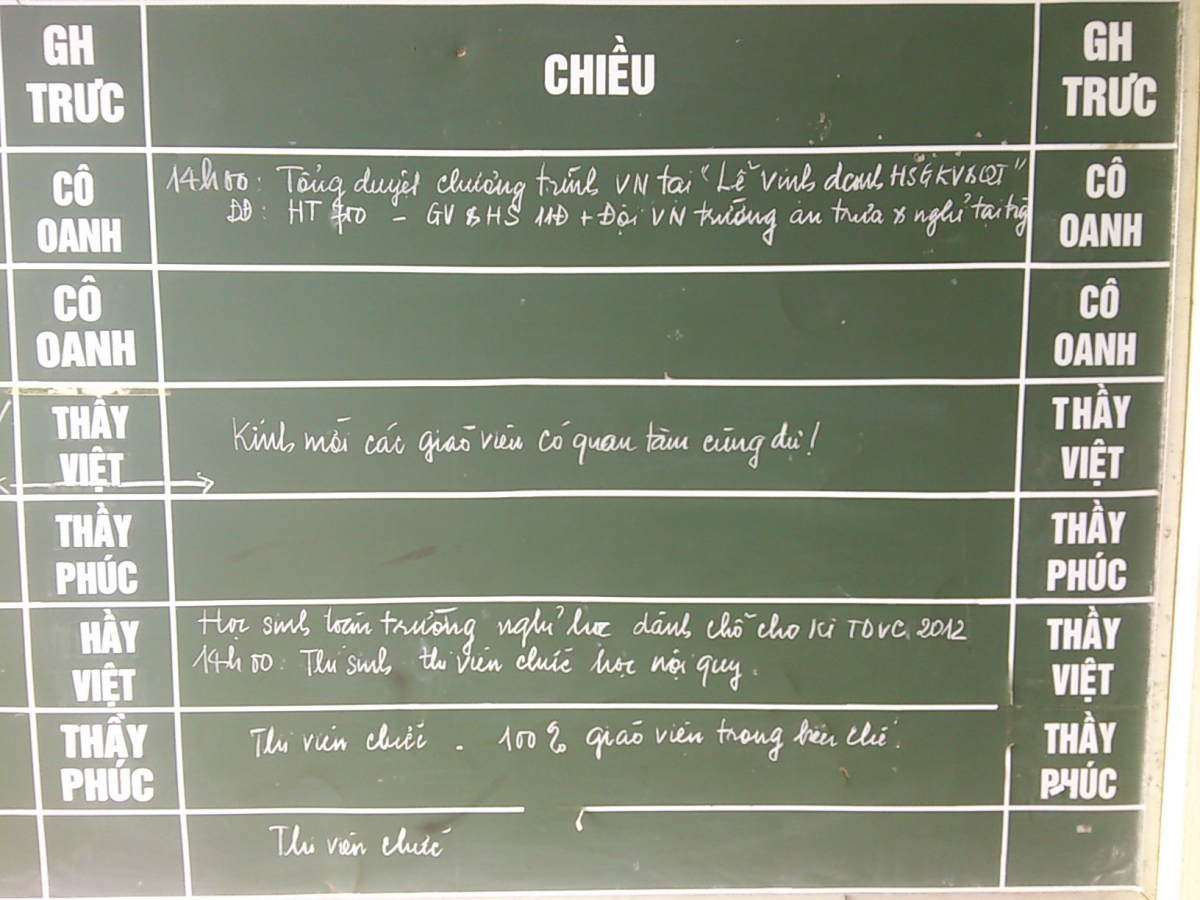 GH
TRỰC
CHIỀU
GH
TRỰC
CÔ
OANH
14h00: Tổng duyệt chương trình VN tại "Lễ Vinh danh HSGKV&QT"
ĐĐ: HT - GV & HS 11Đ + Đội VN trường ăn trưa & nghỉ tại trg
CÔ
OANH
CÔ
OANH
CÔ
OANH
THẦY
VIỆT
Kính mời các giáo viên có quan tâm cùng dự!
THẦY
VIỆT
THẦY
PHÚC
THẦY
PHÚC
HẦY
VIỆT
Học sinh toàn trường nghỉ học dành chỗ cho kì TDVC 2012
14h00: Thí sinh thi viên chức học nội quy
THẦY
VIỆT
THẦY
PHÚC
Thi viên chức. 100% giáo viên trong biên chế.
THẦY
PHÚC
Thi viên chức